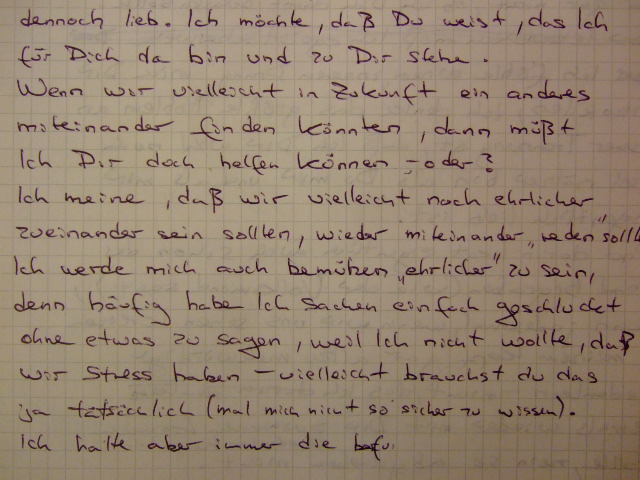 dennoch lieb. Ich möchte, daß Du weist, das Ich
für Dich da bin und zu Dir stehe.
Wenn wir vielleicht in Zukunft ein anderes
miteinander finden könnten, dann müßt
Ich Dir doch helfen können - oder?
Ich meine, daß wir vielleicht noch ehrlicher
zueinander sein sollten, wieder miteinander „reden“
Ich werde mich auch bemühen „ehrlicher“ zu sein,
denn häufig habe Ich Sachen einfach geschluckt
ohne etwas zu sagen, weil Ich nicht wollte, daß
wir Stress haben - vielleicht brauchst du das
ja tatsächlich (mal mich nicht so sicher zu wissen).
Ich hatte aber immer die